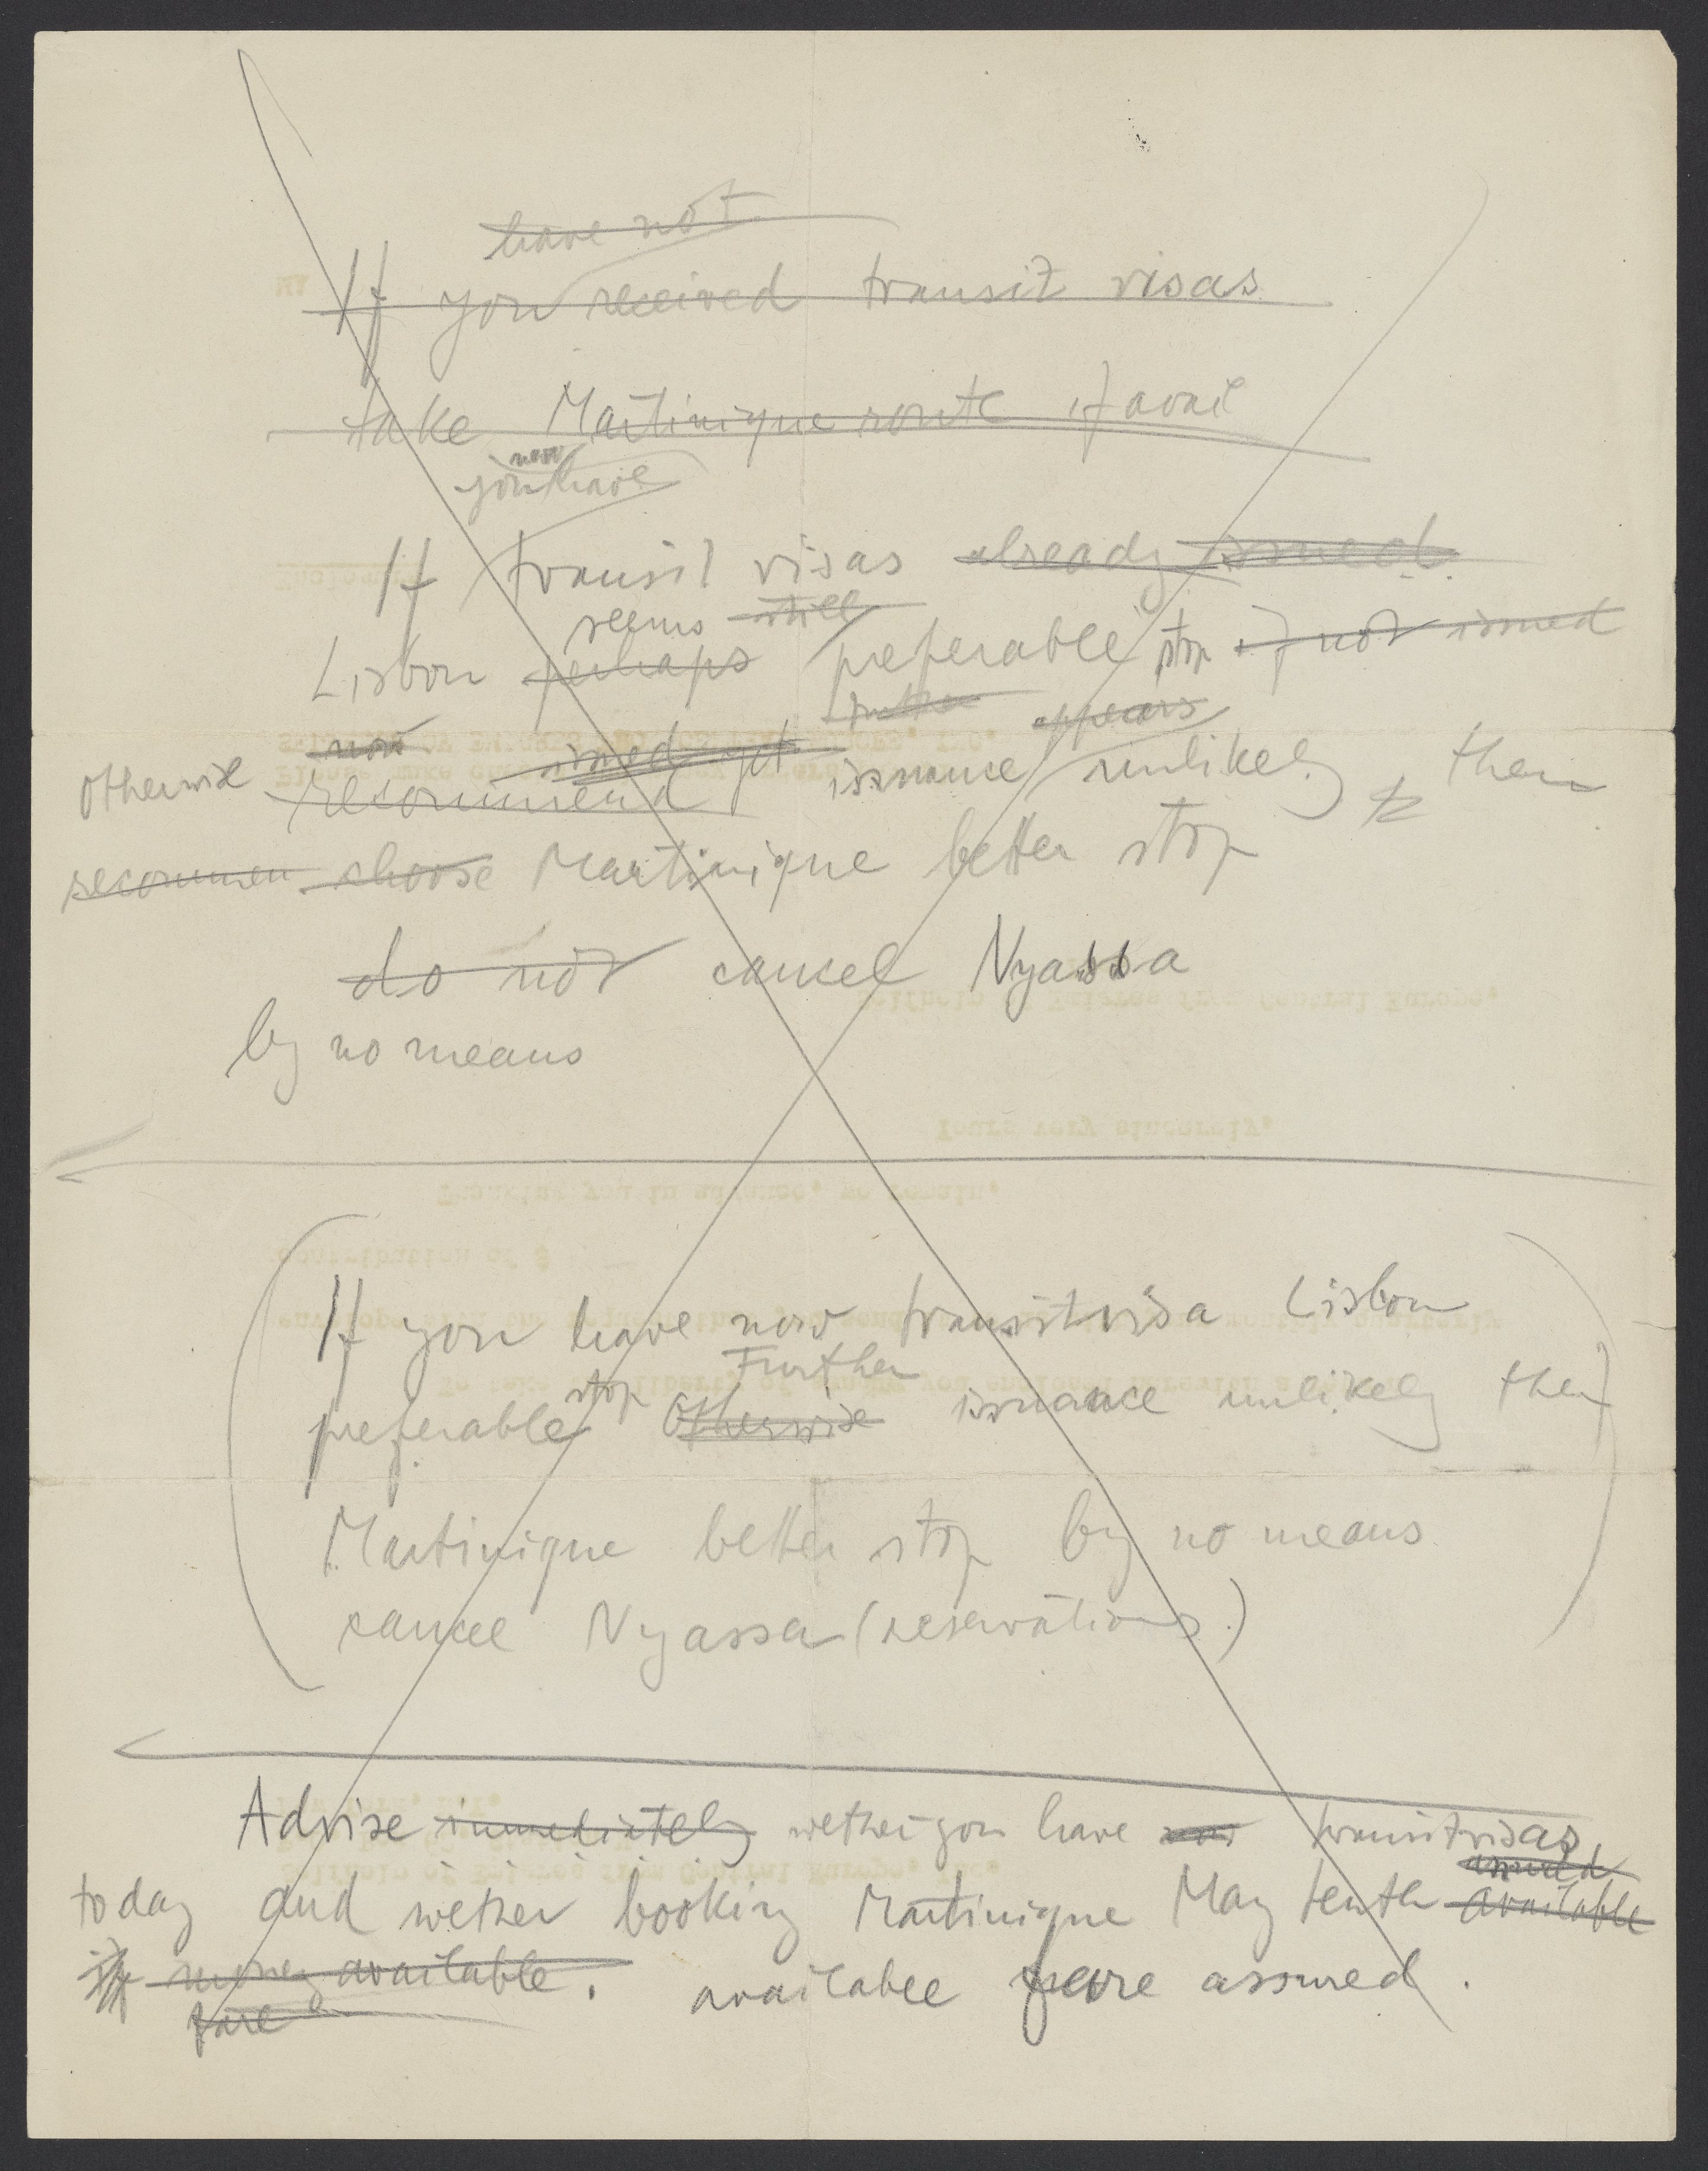 have not
If you received transit visas
take Martinique route if avail
now
you have
If transit visas already issued
seems still
Lisbon perhaps preferable stop if not issued
further appears
not issued yet
Otherwise recommend issuance unlikely then
recommen choose Martinique better stop
do not cancel Nyassa
by no means
If you have now transitvisa Lisbon
stop Further
preferable Otherwise issuance unlikely then
Martinique better stop by no means
cancel Nyassa (reservations.)
Advise immediately wether you have now transitvisas
assured
today and wether booking Martinique May tenth available
if money available. availabel fare assured.
fare